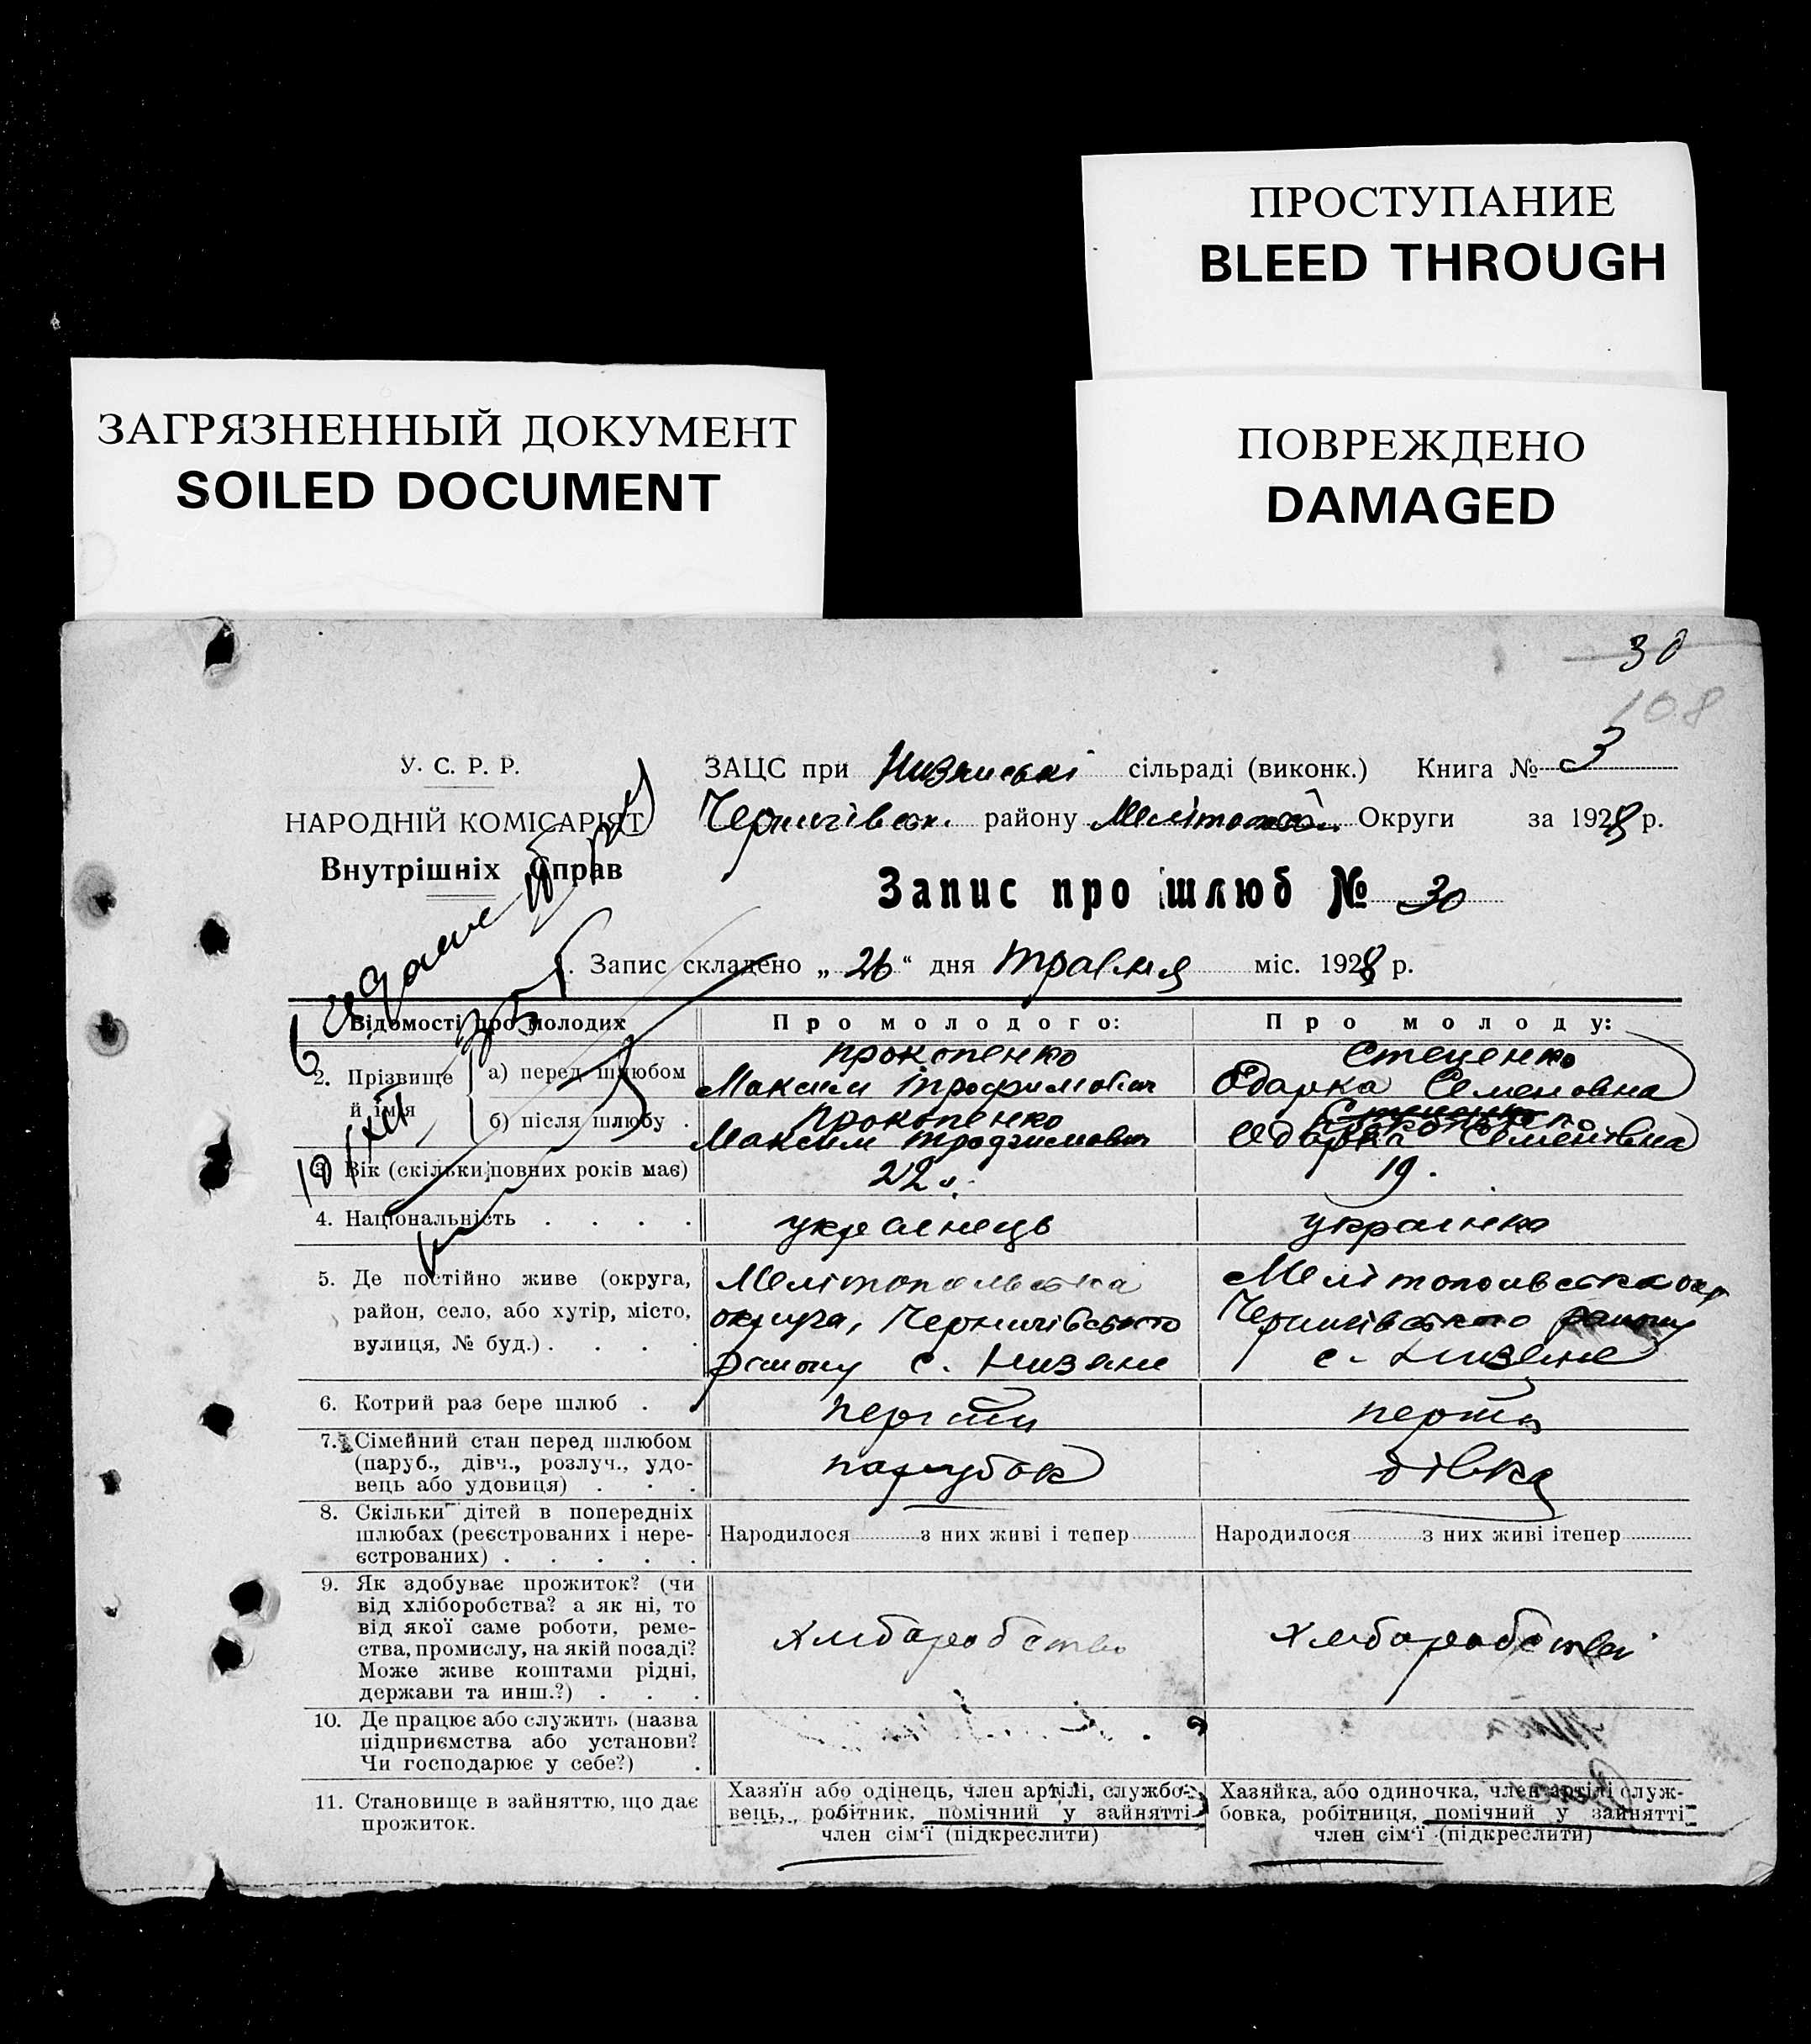 ПРОСТУПАНИЕ
BLEED THROUGH
ЗАГРЯЗНЕННЫЙ ДОКУМЕНТ
SOILED DOCUMENT
ПОВРЕЖДЕНО
DAMAGED
30
108
У. С. Р. Р.
НАРОДНІЙ КОМІСАРІЯТ
Внутрішніх Справ
ЗАЦС при Низянські сільраді (виконк.) Книга № 3
Чернигівськ. району Меліто Округи за 1928 р.
Запис про шлюб № 30
1. Запис складено „ 26 “ дня травня міс. 1928 р.
Відомості про молодих
Про молодого:
Про молоду:
2. Прізвище й імя
а) перед шлюбом
Прокопенко
Максим Трофимович
Стеценко
Одарка Семеновна
б) після шлюбу .
Прокопенко
Максим Трофимович
Стеценко
Прокопенко
Одарка Семенівна
3. Вік (скільки повних років має)
22 р.
19.
4. Національність . . . .
українець
українка
5. Де постійно живе (округа,
район, село, або хутір, місто,
вулиця, № буд.) . . . .
Мелітопольська
округа, Чернигівського
району с. Низяни
Мелітопольська окр
Чернигівського району
с. Низяне
6. Котрий раз бере шлюб . .
перший
перший
7. Сімейний стан перед шлюбом
(паруб., дівч., розлуч., удо-
вець або удовиця) . . .
парубок
дівка
8. Скільки дітей в попередніх
шлюбах (реєстрованих і нере-
єстрованих) . . . . .
Народилося з них живі і тепер
Народилося з них живі ітепер
9. Як здобуває прожиток? (чи
від хліборобства? а як ні, то
від якої саме роботи, реме-
ства, промислу, на якій посаді?
Може живе коштами рідні,
держави та инш.?) . . .
хлібаробство
хлібаробство
10. Де працює або служить (назва
підприємства або установи?
Чи господарює у себе?) .
11. Становище в зайняттю, що дає
прожиток.
Хазяїн або одінець, член артілі, службо-
вець, робітник, помічний у зайнятті
член сім'ї (підкреслити)
Хазяйка, або одиночка, член артілі служ-
бовка, робітниця, помічний у зайнятті
член сім'ї (підкреслити)